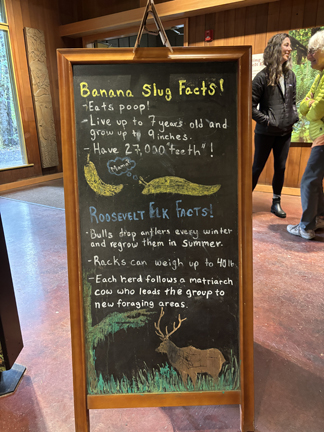 Banana Slug Facts!
- Eats poop!
- Live up to 7 years old and
grow up to 9 inches.
- Have 27,000 "teeth"!
Mama?
Roosevelt Elk Facts!
- Bulls drop antlers every winter
and regrow them in summer.
- Racks can weigh up to 40 lb.
- Each herd follows a matriarch
cow who leads the group to
new foraging areas.